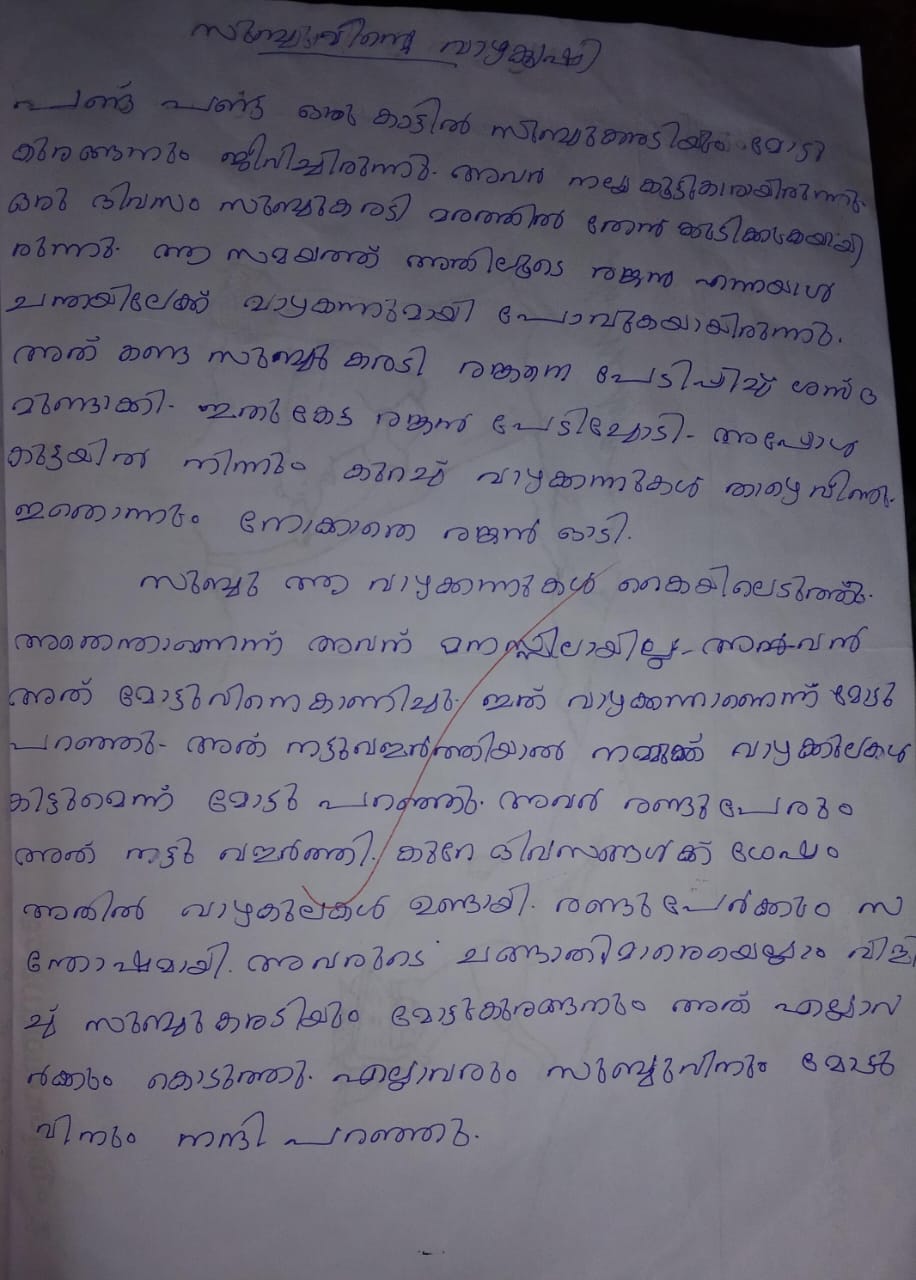 സുബ്ബുവിന്റെ വാഴകൃഷി
പണ്ട് പണ്ട് ഒരു കാട്ടിൽ സുബ്ബുകരടിയും മോട്ടു
കുരങ്ങനും ജീവിച്ചിരുന്നു. അവർ നല്ല കൂട്ടുകാരായിരുന്നു.
ഒരു ദിവസം സുബ്ബുകരടി മരത്തിൽ തേൻ കുടിക്കുകയായി
രുന്നു. ആ സമയത്ത് അതിലൂടെ രങ്കൻ എന്നയാൾ
ചന്തയിലേക്ക് വാഴകന്നുമായി പോവുകയായിരുന്നു.
അത് കണ്ട സുബ്ബു കരടി രങ്കനെ പേടിപ്പിച്ച് ശബ്ദ
മുണ്ടാക്കി. ഇതുകേട്ട രങ്കൻ പേടിച്ചോടി. അപ്പോൾ
കുട്ടയിൽ നിന്നും കുറച്ച് വാഴക്കന്നുകൾ താഴെ വീണു.
ഇതൊന്നും നോക്കാതെ രങ്കൻ ഓടി.
സുബ്ബു ആ വാഴക്കന്നുകൾ കൈയിലെടുത്തു.
അതെന്താണെന്ന് അവന് മനസ്സിലായില്ല. അവൻ
അത് മോട്ടുവിനെ കാണിച്ചു. ഇത് വാഴക്കന്നാണെന്ന് മോട്ടു
പറഞ്ഞു. അത് നട്ടുവളർത്തിയാൽ നമ്മുക്ക് വാഴക്കുലകൾ
കിട്ടുമെന്ന് മോട്ടു പറഞ്ഞു. അവർ രണ്ടുപേരും
അത് നട്ടു വളർത്തി. കുറേ ദിവസങ്ങൾക്ക് ശേഷം
അതിൽ വാഴകുലകൾ ഉണ്ടായി. രണ്ടുപേർക്കും സ
ന്തോഷമായി. അവരുടെ ചങ്ങാതിമാരെയെല്ലാം വിളി
ച്ച് സുബ്ബുകരടിയും മോട്ടുകുരങ്ങനും അത് എല്ലാവ
ർക്കും കൊടുത്തു. എല്ലാവരും സുബ്ബുവിനും മോട്ടു
വിനും നന്ദി പറഞ്ഞു.